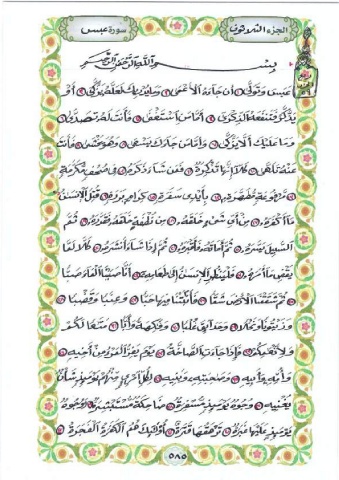 الجزء الثلاثون سورة عبس
بِسْمِ اللَّهِ الرَّحْمَٰنِ الرَّحِيمِ
عَبَسَ وَتَوَلَّىٰ ۝ أَن جَاءَهُ الْأَعْمَىٰ ۝ وَمَا يُدْرِيكَ لَعَلَّهُ يَزَّكَّىٰ ۝ أَوْ
يَذَّكَّرُ فَتَنفَعَهُ الذِّكْرَىٰ ۝ أَمَّا مَنِ اسْتَغْنَىٰ ۝ فَأَنتَ لَهُ تَصَدَّىٰ ۝
وَمَا عَلَيْكَ أَلَّا يَزَّكَّىٰ ۝ وَأَمَّا مَن جَاءَكَ يَسْعَىٰ ۝ وَهُوَ يَخْشَىٰ ۝ فَأَنتَ
عَنْهُ تَلَهَّىٰ ۝ كَلَّا إِنَّهَا تَذْكِرَةٌ ۝ فَمَن شَاءَ ذَكَرَهُ ۝ فِي صُحُفٍ مُّكَرَّمَةٍ
۝ مَّرْفُوعَةٍ مُّطَهَّرَةٍ ۝ بِأَيْدِي سَفَرَةٍ ۝ كِرَامٍ بَرَرَةٍ ۝ قُتِلَ الْإِنسَٰنُ
مَا أَكْفَرَهُ ۝ مِنْ أَيِّ شَيْءٍ خَلَقَهُ ۝ مِن نُّطْفَةٍ خَلَقَهُ فَقَدَّرَهُ ۝ ثُمَّ
السَّبِيلَ يَسَّرَهُ ۝ ثُمَّ أَمَاتَهُ فَأَقْبَرَهُ ۝ ثُمَّ إِذَا شَاءَ أَنشَرَهُ ۝ كَلَّا لَمَّا
يَقْضِ مَا أَمَرَهُ ۝ فَلْيَنظُرِ الْإِنسَٰنُ إِلَىٰ طَعَامِهِ ۝ أَنَّا صَبَبْنَا الْمَاءَ صَبًّا
۝ ثُمَّ شَقَقْنَا الْأَرْضَ شَقًّا ۝ فَأَنبَتْنَا فِيهَا حَبًّا ۝ وَعِنَبًا وَقَضْبًا ۝
وَزَيْتُونًا وَنَخْلًا ۝ وَحَدَائِقَ غُلْبًا ۝ وَفَٰكِهَةً وَأَبًّا ۝ مَّتَٰعًا لَّكُمْ
وَلِأَنْعَٰمِكُمْ ۝ فَإِذَا جَاءَتِ الصَّاخَّةُ ۝ يَوْمَ يَفِرُّ الْمَرْءُ مِنْ أَخِيهِ
۝ وَأُمِّهِ وَأَبِيهِ ۝ وَصَٰحِبَتِهِ وَبَنِيهِ ۝ لِكُلِّ امْرِئٍ مِّنْهُمْ يَوْمَئِذٍ شَأْنٌ
يُغْنِيهِ ۝ وُجُوهٌ يَوْمَئِذٍ مُّسْفِرَةٌ ۝ ضَاحِكَةٌ مُّسْتَبْشِرَةٌ ۝ وَوُجُوهٌ
يَوْمَئِذٍ عَلَيْهَا غَبَرَةٌ ۝ تَرْهَقُهَا قَتَرَةٌ ۝ أُولَٰئِكَ هُمُ الْكَفَرَةُ الْفَجَرَةُ ۝
٥٨٥